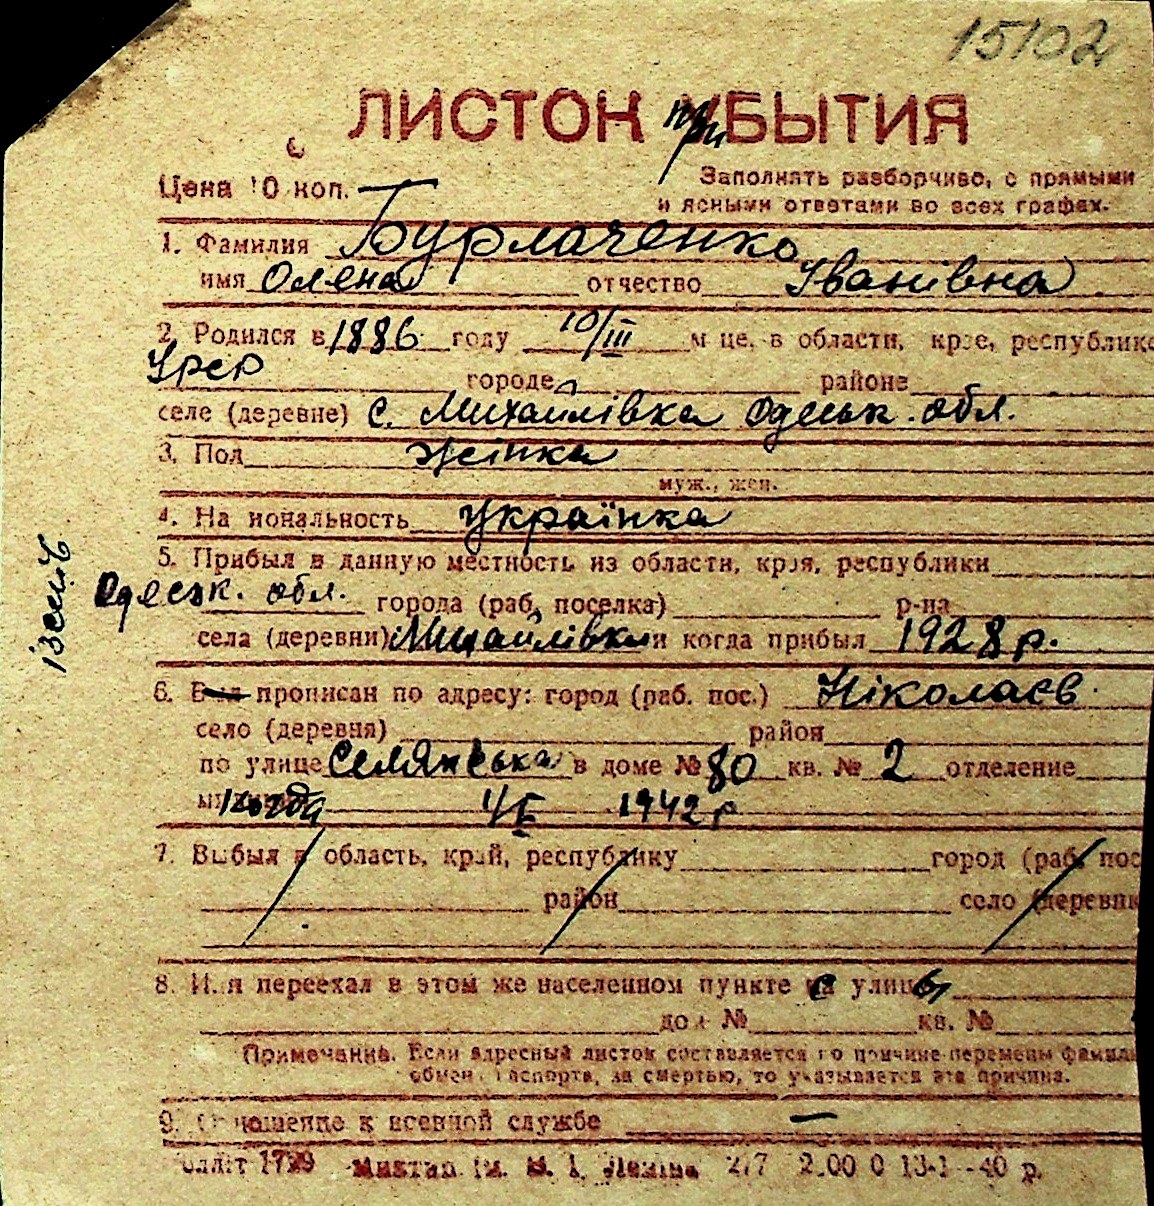 15102
ЛИСТОК при УБЫТИЯ
Цена 10 коп.
Заполнять разборчиво, с прямыми
и ясными ответами во всех графах.
1. Фамилия Бурлаченко
имя Олена отчество Іванівна
2. Родился в 1886 году 10/III м це, в области, крае, республике
УРСР городе районе
селе (деревне) с. Михайлівка Одеськ. обл.
3. Пол жінка
муж., жен.
4. На иональность українка
5. Прибыл в данную местность из области, края, республики
Одеськ. обл. города (раб. поселка) р-на
села (деревни) Михайлівки и когда прибыл 1928 р.
6. Был прописан по адресу: город (раб. пос.) Ніколаєв
село (деревня) район
по улице Селянська в доме № 80 кв. № 2 отделение
когда 1/I 1942 р
7. Выбыл в область, край, республику город (раб. пос
район село (деревня
8. И.я переехал в этом же населенном пункте с улицы
дом № кв. №
Примечание. Если адресный листок составляется по причине перемены фамили
обмен паспорта, за смертью, то указывается эта причина.
9. О ношение к военной службе —
олліт 1799 Миктип ім. В. І. Леніна 277 2.00 0 13-1 -40 р.